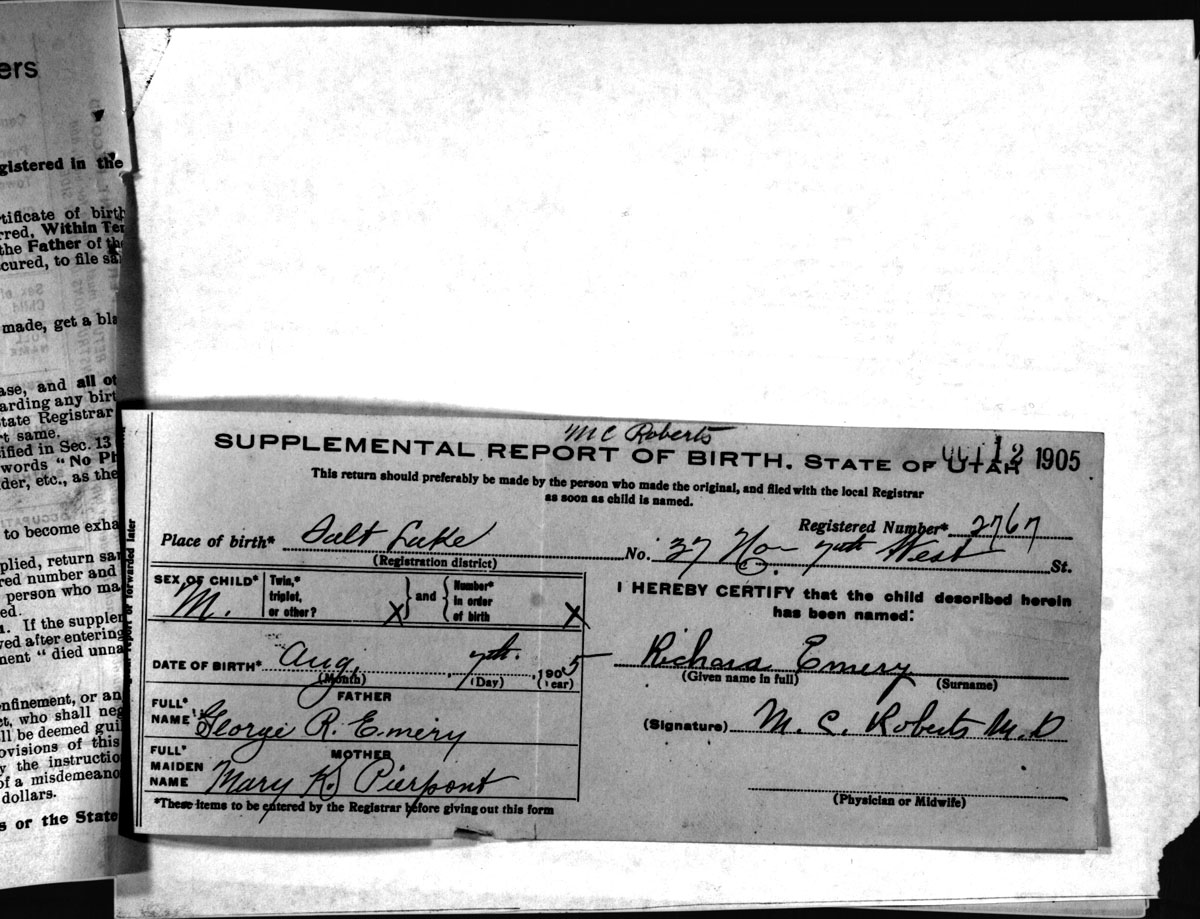 ers
gistered in the
tificate of birth
rred, Within Ter
the Father of the
cured, to file sa
made, get a bla
ase, and all ot
arding any birt
tate Registrar
't same.
ified in Sec. 13
words "No Ph
der, etc., as the
to become exha
pplied, return sa
red number and
person who ma
ed.
If the supplem
ved after entering
ment "died unna
nfinement, or an
ct, who shall neg
ll be deemed guil
ovisions of this
y the instructio
of a misdemeano
dollars.
s or the State
report or forwarded later
M C Roberts
SUPPLEMENTAL REPORT OF BIRTH. STATE OF UTAH
OCT 12 1905
This return should preferably be made by the person who made the original, and filed with the local Registrar
as soon as child is named.
Registered Number* 2767
Place of birth* Salt Lake No. 37 No. 7th West St.
(Registration district)
SEX OF CHILD* M.
Twin,*
triplet,
or other? X
and
Number*
in order
of birth X
DATE OF BIRTH* Aug. 7th. 1905
(Month) (Day) (Year)
FATHER
FULL*
NAME George R. Emery
MOTHER
FULL*
MAIDEN
NAME Mary K. Pierpont
*These items to be entered by the Registrar before giving out this form
I HEREBY CERTIFY that the child described herein
has been named:
Richard Emery
(Given name in full) (Surname)
(Signature) M. C. Roberts M.D
(Physician or Midwife)